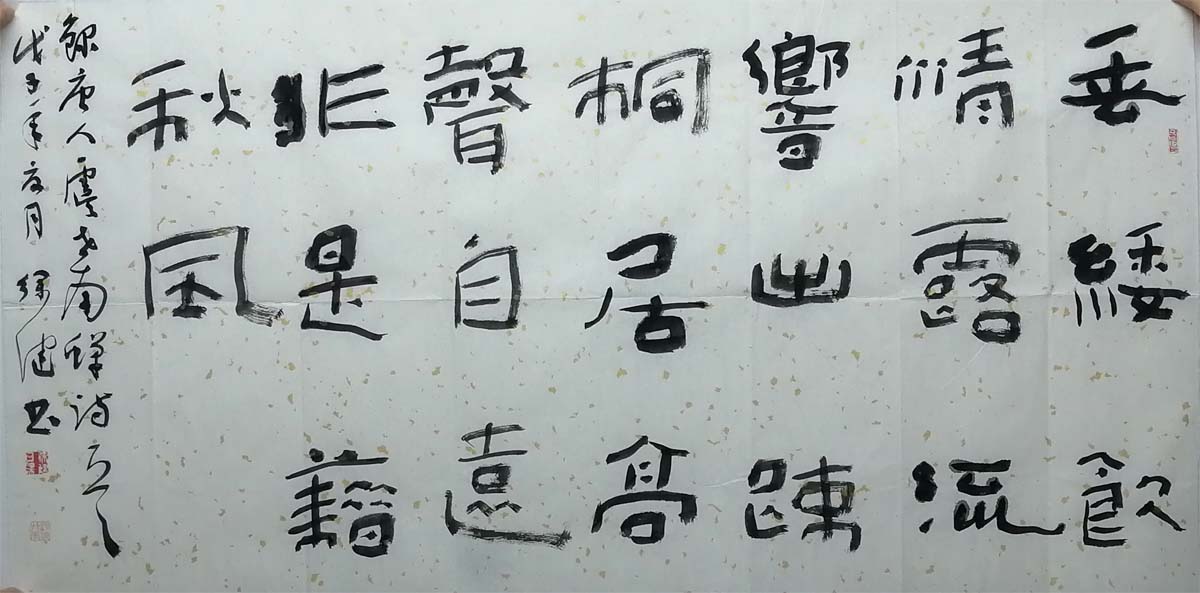 垂緌飲
清露流
響出踈
桐居高
聲自遠
非是藉
秋風
錄唐人虞世南蟬詩一首
戊子年夏月 健書